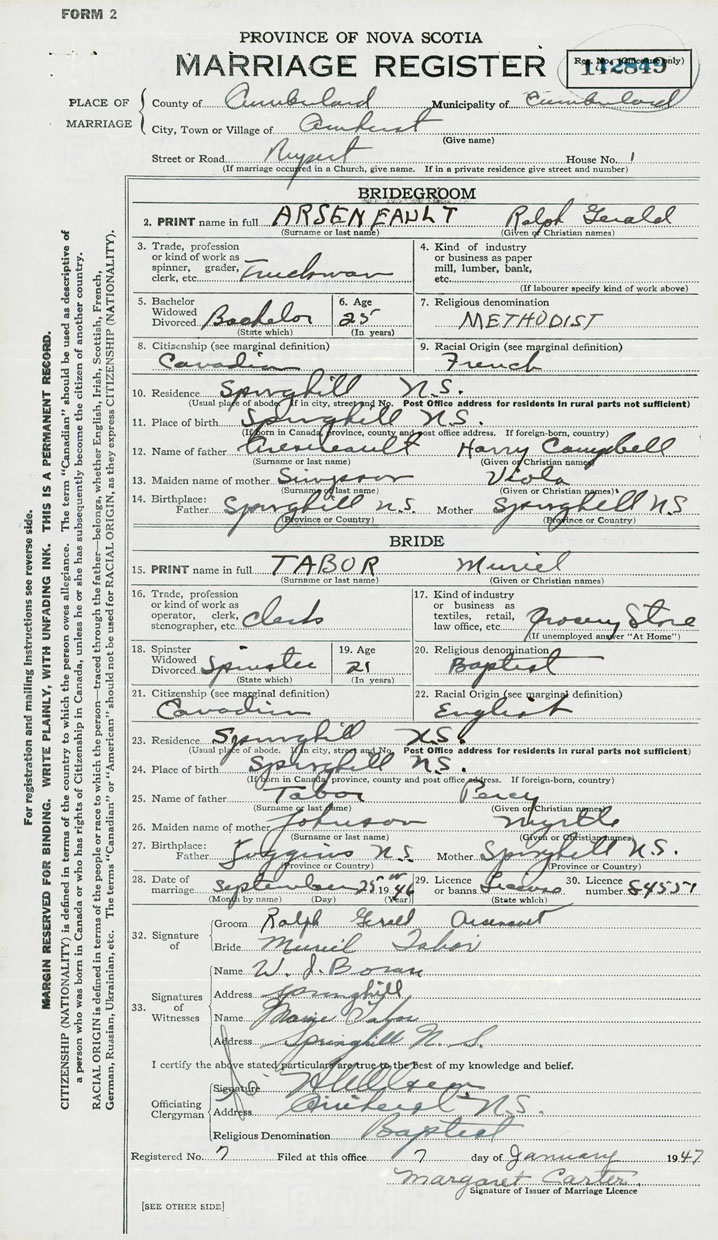 FORM 2
PROVINCE OF NOVA SCOTIA
MARRIAGE REGISTER
Reg. No. (Office use only)
142849
PLACE OF MARRIAGE
County of Cumberland Municipality of Cumberland
City, Town or Village of Amherst
(Give name)
Street or Road Rupert House No. 1
(If marriage occurred in a Church, give name. If in a private residence give street and number)
BRIDEGROOM
2. PRINT name in full ARSENEAULT Ralph Gerald
(Surname or last name) (Given or Christian names)
3. Trade, profession or kind of work as spinner, grader, clerk, etc. Truckman
4. Kind of industry or business as paper mill, lumber, bank, etc.
(If labourer specify kind of work above)
5. Bachelor Widowed Divorced Bachelor (State which)
6. Age 25 (In years)
7. Religious denomination METHODIST
8. Citizenship (see marginal definition) Canadian
9. Racial Origin (see marginal definition) French
10. Residence Springhill N.S.
(Usual place of abode. If in city, street and No. Post Office address for residents in rural parts not sufficient)
11. Place of birth Springhill N.S.
(If born in Canada, province, county and post office address. If foreign-born, country)
12. Name of father Harry Campbell
(Surname or last name) (Given or Christian names)
13. Maiden name of mother Simpson Viola
(Surname or last name) (Given or Christian names)
14. Birthplace: Father Springhill N.S. Mother Springhill N.S.
(Province or Country) (Province or Country)
BRIDE
15. PRINT name in full TABOR Muriel
(Surname or last name) (Given or Christian names)
16. Trade, profession or kind of work as operator, clerk, stenographer, etc. Clerk
17. Kind of industry or business as textiles, retail, law office, etc. Grocery Store
(If unemployed answer "At Home")
18. Spinster Widowed Divorced Spinster (State which)
19. Age 21 (In years)
20. Religious denomination Baptist
21. Citizenship (see marginal definition) Canadian
22. Racial Origin (see marginal definition) English
23. Residence Springhill N.S.
(Usual place of abode. If in city, street and No. Post Office address for residents in rural parts not sufficient)
24. Place of birth Springhill N.S.
(If born in Canada, province, county and post office address. If foreign-born, country)
25. Name of father Tabor Percy
(Surname or last name) (Given or Christian names)
26. Maiden name of mother Johnson Myrtle
(Surname or last name) (Given or Christian names)
27. Birthplace: Father Joggins N.S. Mother Springhill N.S.
(Province or Country) (Province or Country)
28. Date of marriage September 25 1946
(Month by name) (Day) (Year)
29. Licence or banns License (State which)
30. Licence number
32. Signature of
Groom Ralph Gerald Arsenault
Bride Muriel Tabor
33. Signatures of Witnesses
Name W. J. Boran
Address Springhill
Name Tabor
Address Springhill N. S.
I certify the above stated particulars are true to the best of my knowledge and belief.
Officiating Clergyman
Signature
Address Amherst N.S.
Religious Denomination Baptist
Registered No. 7 Filed at this office 7 day of January 1947
Margaret Carter
Signature of Issuer of Marriage Licence
[SEE OTHER SIDE]
For registration and mailing instructions see reverse side.
MARGIN RESERVED FOR BINDING. WRITE PLAINLY, WITH UNFADING INK. THIS IS A PERMANENT RECORD.
CITIZENSHIP (NATIONALITY) is defined in terms of the country to which the person owes allegiance. The term "Canadian" should be used as descriptive of
a person who was born in Canada or who has rights of Citizenship in Canada, unless he or she has subsequently become the citizen of another country.
RACIAL ORIGIN is defined in terms of the people or race to which the person—traced through the father—belongs, whether English, Irish, Scottish, French,
German, Russian, Ukrainian, etc. The terms "Canadian" or "American" should not be used for RACIAL ORIGIN, as they express CITIZENSHIP (NATIONALITY).